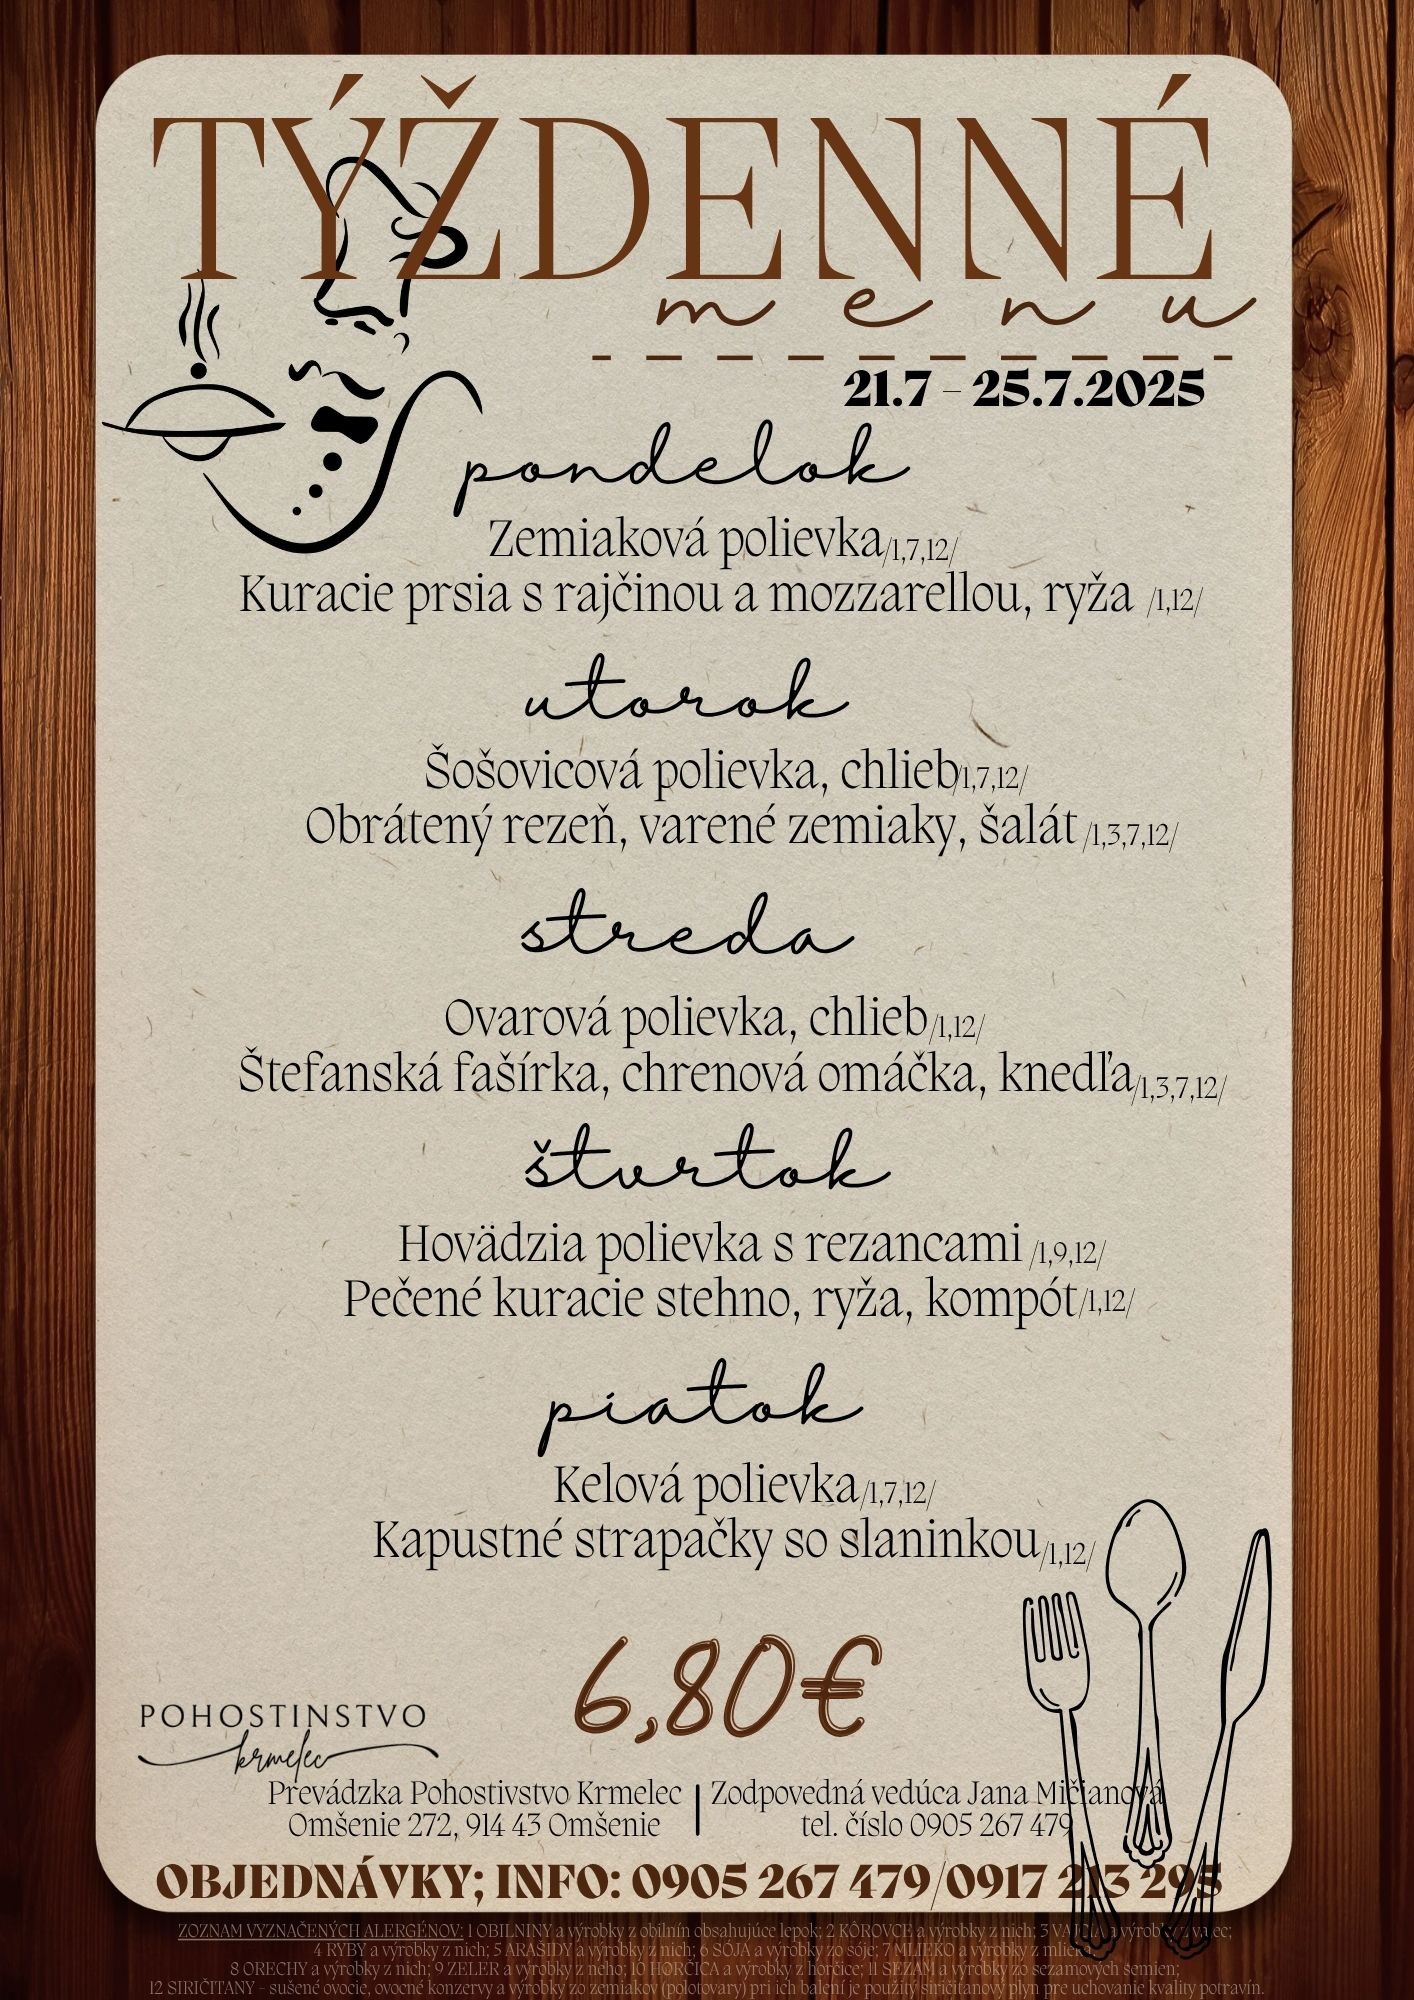 TÝŽDENNÉ
menu
21.7 - 25.7.2025
pondelok
Zemiaková polievka/1,7,12/
Kuracie prsia s rajčinou a mozzarellou, ryža /1,12/
utorok
Šošovicová polievka, chlieb/1,7,12/
Obrátený rezeň, varené zemiaky, šalát /1,3,7,12/
streda
Ovarová polievka, chlieb/1,12/
Štefanská fašírka, chrenová omáčka, knedľa/1,3,7,12/
štvrtok
Hovädzia polievka s rezancami /1,9,12/
Pečené kuracie stehno, ryža, kompót/1,12/
piatok
Kelová polievka/1,7,12/
Kapustné strapačky so slaninkou/1,12/
6,80€
POHOSTINSTVO
krmelec
Prevádzka Pohostivstvo Krmelec | Zodpovedná vedúca Jana Mičianová
Omšenie 272, 914 43 Omšenie | tel. číslo 0905 267 479
OBJEDNÁVKY; INFO: 0905 267 479/0917 213 295
ZOZNAM VYZNAČENÝCH ALERGÉNOV: 1 OBILNINY a výrobky z obilnín obsahujúce lepok; 2 KÔROVCE a výrobky z nich; 3 VAJCIA a výrobky z vajec;
4 RYBY a výrobky z nich; 5 ARAŠIDY a výrobky z nich; 6 SÓJA a výrobky zo sóje; 7 MLIEKO a výrobky z mlieka
8 ORECHY a výrobky z nich; 9 ZELER a výrobky z neho; 10 HORČICA a výrobky z horčice; 11 SEZAM a výrobky zo sezamových semien;
12 SIRIČITANY - sušené ovocie, ovocné konzervy a výrobky zo zemiakov (polotovary) pri ich balení je použitý siričitanový plyn pre uchovanie kvality potravín.